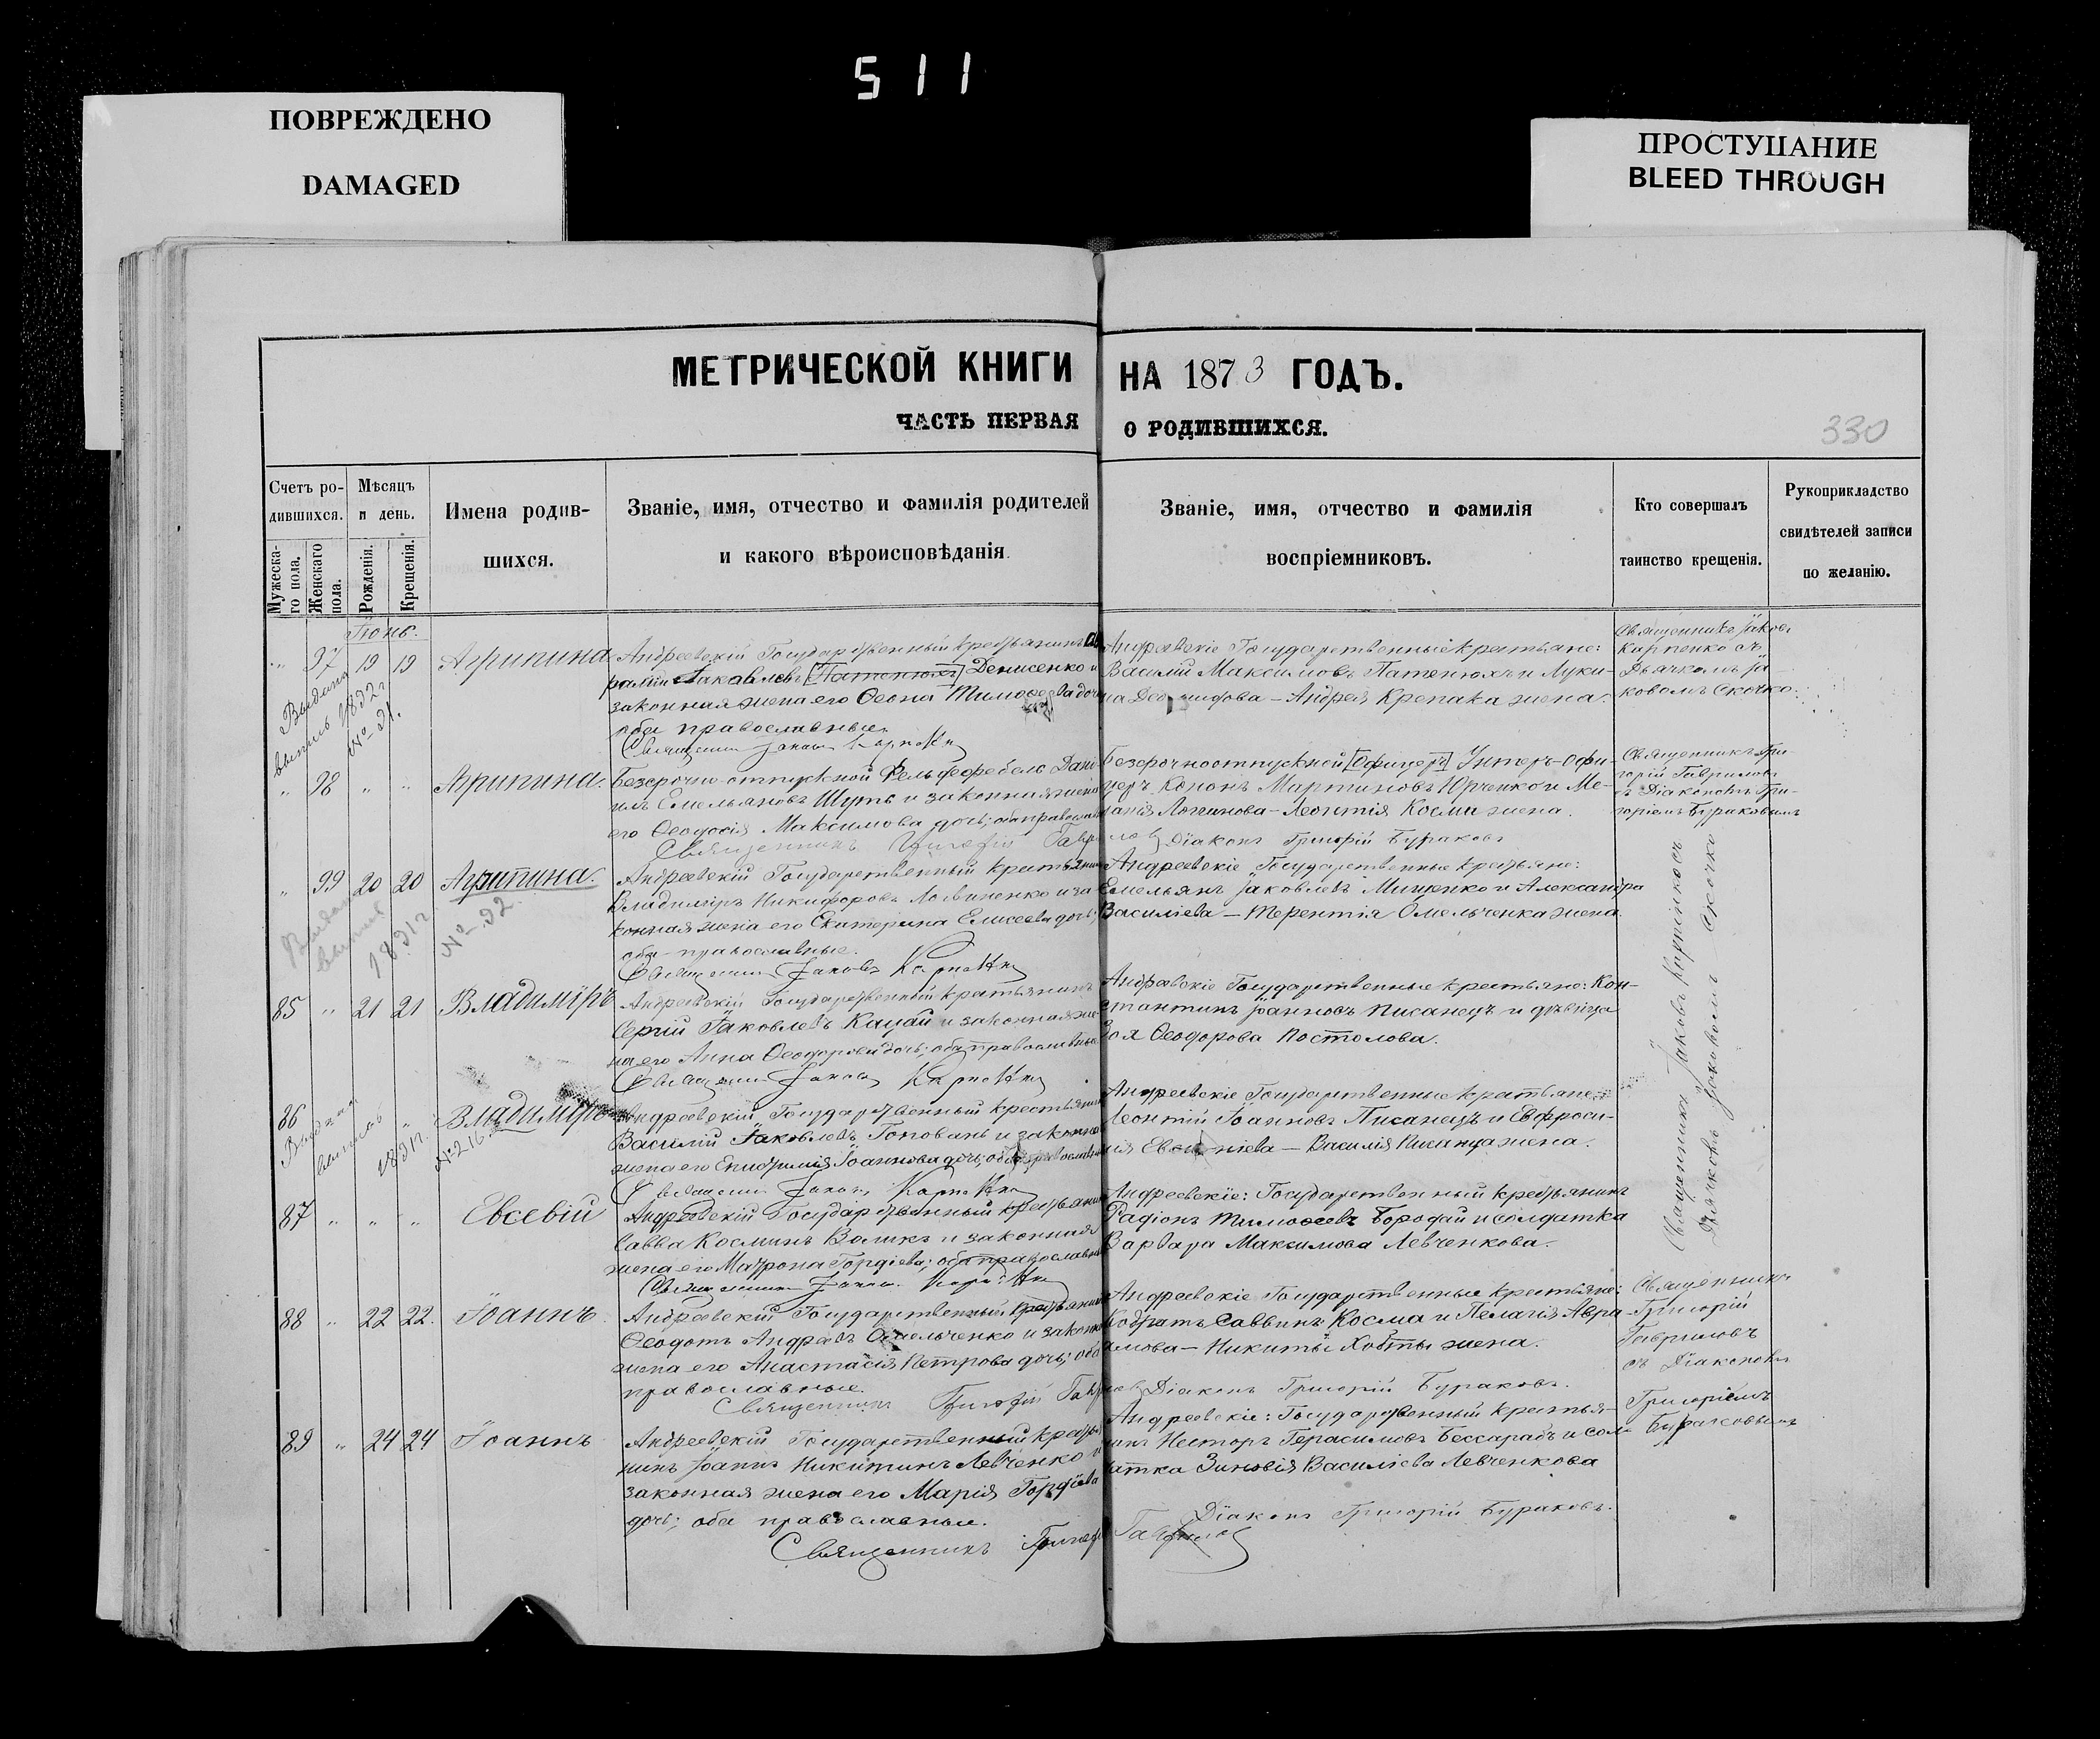 511
ПОВРЕЖДЕНО
DAMAGED
ПРОСТУПАНИЕ
BLEED THROUGH
МЕТРИЧЕСКОЙ КНИГИ НА 1873 ГОДЪ.
ЧАСТЬ ПЕРВАЯ О РОДИВШИХСЯ.
330
Счетъ ро-
дившихся.
Мужеска-
го пола.
Женскаго
пола.
Мѣсяцъ
и день.
Рожденія.
Крещенія.
Имена родив-
шихся.
Званіе, имя, отчество и фамилія родителей
и какого вѣроисповѣданія.
Званіе, имя, отчество и фамилія
воспріемниковъ.
Кто совершалъ
таинство крещенія.
Рукоприкладство
свидѣтелей записи
по желанію.
Іюнь.
" 97 19 19 Агрипина
Андреевскій Государственный крестьянинъ
Іаковлевъ [Патенюхъ] Денисенко и
законная жена его Ѳеона Тимоѳеева дочь
оба православные.
Священникъ Іаковъ Карпенко
Андреевскіе Государственные крестьяне:
Василій Максимовъ Патенюхъ и Луки-
на – Андрея Крепака жена.
Священникъ Іаковъ
Карпенко съ
Дьячкомъ Іа-
ковомъ Скочко.
Выдана
выпись 1892 г.
№ 21.
" 98 " " Агрипина.
Безсрочно-отпускной Фельдфебель Дані-
илъ Емельяновъ Шуть и законная жена
его Ѳеодосія Максимова дочь; оба православные
Священникъ Григорій Гаврилов Діаконъ Григорій Бураковъ
Безсрочноотпускной [Офицеръ] Унтеръ-офи-
церъ Кононъ Мартиновъ Юрченко и Ме-
ланія Логинова – Леонтія Космы жена.
Священникъ Гри-
горій Гавриловъ
съ Діакономъ Гри-
горіемъ Бураковымъ
" 99 20 20 Агрипина.
Андреевскій Государственный крестьянинъ
Владиміръ Никифоровъ Логвиненко и за-
конная жена его Екатерина Елисеева дочь;
оба православные.
Священникъ Іаковъ Карпенко
Андреевскіе Государственные крестьяне:
Емельянъ Іаковлевъ Мищенко и Александра
Василіева – Терентія Омельченка жена.
Выдана
выпись
1891 г.
№ 92.
85 " 21 21 Владиміръ
Андреевскій Государственный крестьянинъ
Сергій Іаковлевъ Кацай и законная же-
на его Анна Ѳеодорова дочь; оба православные
Священникъ Іаковъ Карпенко
Андреевскіе Государственные крестьяне: Кон-
стантинъ Іоанновъ Писанецъ и дѣвица
Зоя Ѳеодорова Постолова.
Священникъ Іаковъ Карпенко съ
Дьячкомъ Іаковомъ Скочко
86 " " Владиміръ
Андреевскій Государственный крестьянинъ
Василій Іаковлевъ Головань и законная
жена его Іоаннова дочь; оба православные
Священникъ Іаковъ Карпенко
Андреевскіе Государственные крестьяне:
Леонтій Іоанновъ Писанецъ и Евфроси-
нія – Василія Писанца жена.
Выдана
выпись
189 г.
№ 216.
87 " " " Евсевій
Андреевскій Государственный крестьянинъ
Савва Косминъ Воликъ и законная
жена его Матрона Гордіева; оба православные
Священникъ Іаковъ Карпенко
Андреевскіе: Государственный крестьянинъ
Радіонъ Тимоѳеевъ Бородай и солдатка
Варвара Максимова Левченкова.
88 " 22 22. Іоаннъ.
Андреевскій Государственный крестьянинъ
Ѳеодотъ Андреевъ Омельченко и законная
жена его Анастасія Петрова дочь; оба
православные.
Священникъ Григорій Гаврилов Діаконъ Григорій Бураковъ.
Андреевскіе Государственные крестьяне:
Кодратъ Саввинъ Косма и Пелагія Авра-
амова – Никиты Хобты жена.
Священникъ
Григорій
Гавриловъ
съ Діакономъ
Григоріемъ
Бураковымъ
89 " 24 24 Іоаннъ
Андреевскій Государственный крестья-
нинъ Іоаннъ Никитинъ Левченко и
законная жена его Марія Гордіева
дочь; оба православные.
Андреевскіе: Государственный крестья-
нинъ Несторъ Герасимовъ Бессарабъ и сол-
датка Зиновія Василіева Левченкова
Священникъ Григорій Гаврилов
Діаконъ Григорій Бураковъ.